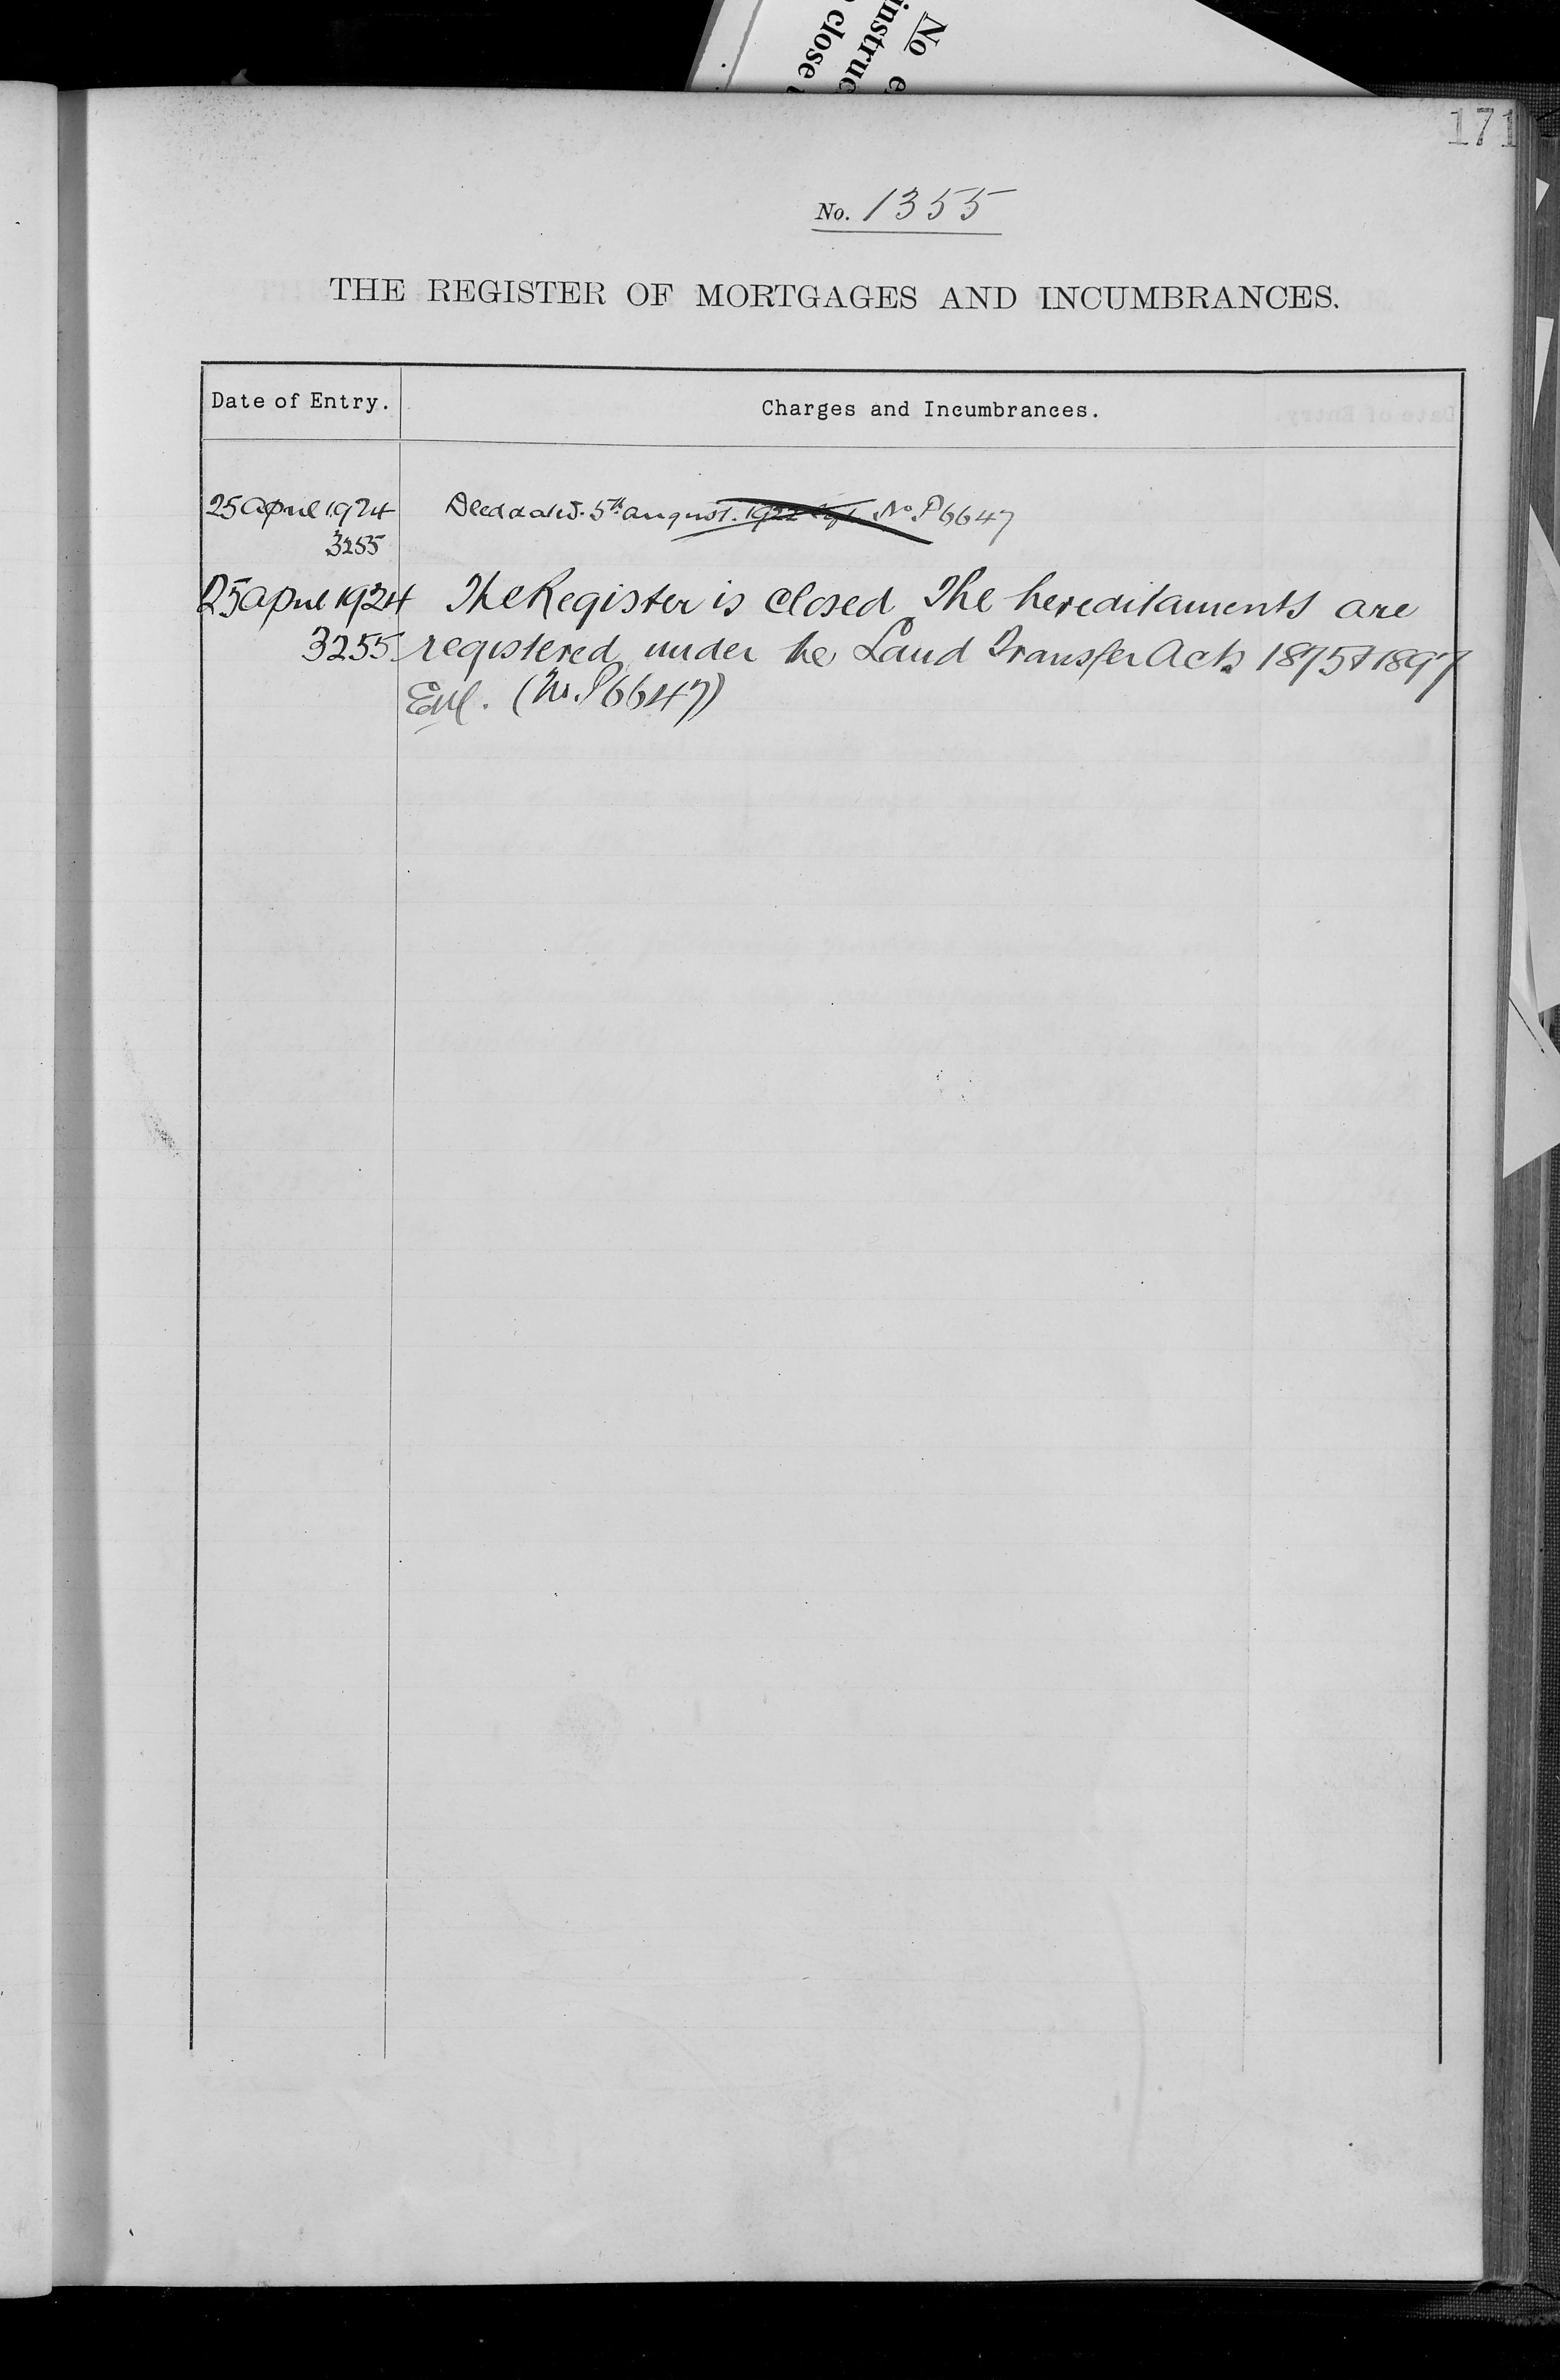 No
instruc
close
171
No. 1355
THE REGISTER OF MORTGAGES AND INCUMBRANCES.
Date of Entry. Charges and Incumbrances.
25 April 1924 Deed dated 5th August 1922 No. P6647
3255
25 April 1924 The Register is closed The hereditaments are
3255 registered under the Land Transfer Acts 1875 & 1897
(No. P6647)